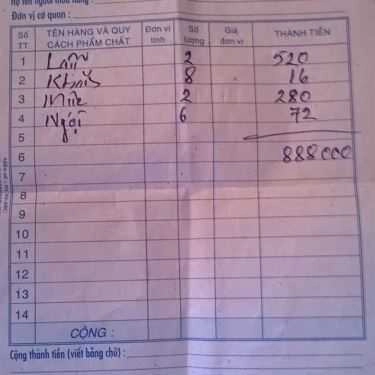 Họ tên người mua hàng :
Đơn vị cơ quan :
Số TT TÊN HÀNG VÀ QUY CÁCH PHẨM CHẤT Đơn vị tính Số lượng Giá đơn vị THÀNH TIỀN
1 2 520
2 Khăn 8 16
3 Mực 2 280
4 Ngói 6 72
5
6 888000
7
8
9
10
11
12
13
14
CỘNG :
Cộng thành tiền (viết bằng chữ) :